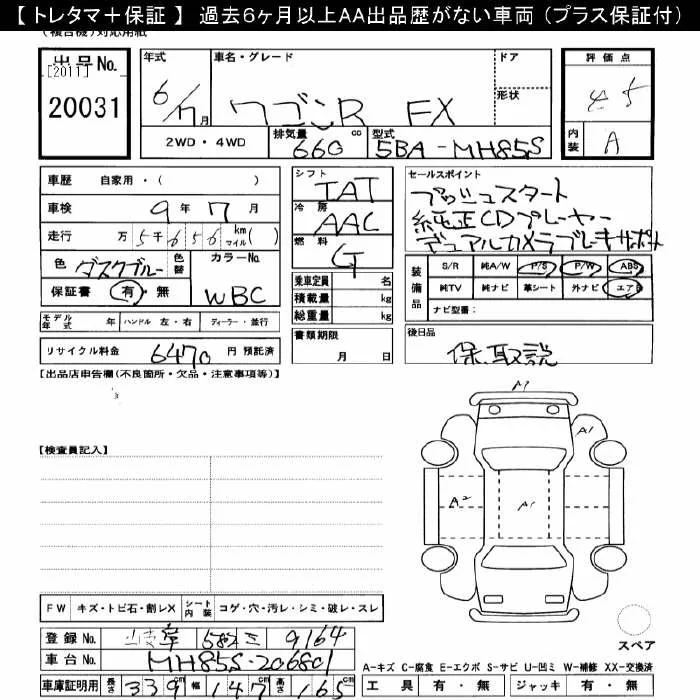 【 トレタマ＋保証 】 過去6ヶ月以上AA出品歴がない車両 (プラス保証付)
(複合機)対応用紙
出品No. [2011] 20031
年式 6/7月
車名・グレード ワゴンR FX
ドア
形状
評価点 4.5
内装 A
2WD・4WD
排気量 660 cc
型式 5BA-MH85S
車歴 自家用・( )
車検 9年 7月
走行 万 5千656 km マイル( )
色 ダスクブルー 色替 カラーNo. WBC
保証書 有・無
モデル年式 年 ハンドル 左・右 ディーラー・並行
リサイクル料金 6470 円 預託済
シフト IAT
冷房 AAC
燃料 G
乗車定員 名
積載量 kg
総重量 kg
書類期限 月 日
セールスポイント
プッシュスタート
純正CDプレーヤー
デュアルカメラブレーキサポート
装備品 S/R 純A/W P/S P/W ABS
純TV 純ナビ 革シート 外ナビ エアB
ナビ型番：
後日品
保、取説
【出品店申告欄(不良箇所・欠品・注意事項等)】
A1
A1
A2
A1
【検査員記入】
FW キズ・トビ石・割レX シート内装 コゲ・穴・汚レ・シミ・破レ・スレ
登録No. 582 9164
車台No. MH85S-206801
車庫証明用 長さ 339cm 幅 147cm 高さ 165cm
スペア
A-キズ C-腐食 E-エクボ S-サビ U-凹ミ W-補修 XX-交換済
工具 有・無 ジャッキ 有・無